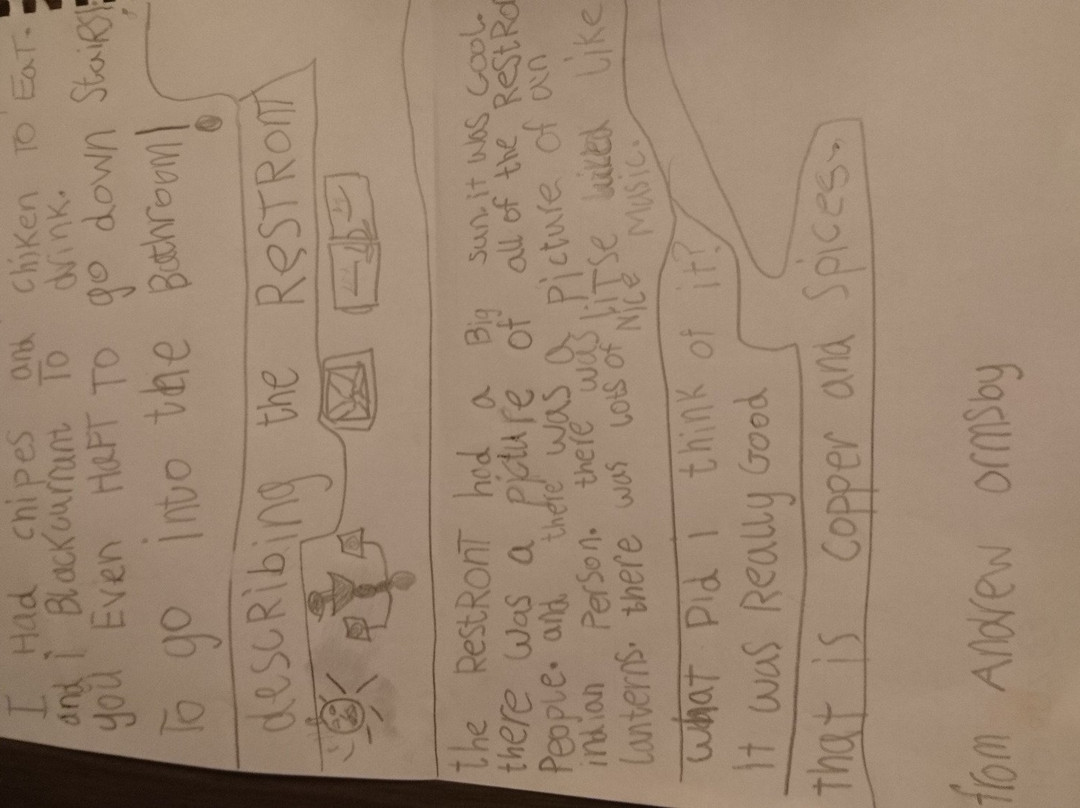 I Had chipes and chiken TO EaT.
and i Blackcurrant To drink.
you Even HAFT TO go down Stairs!
To go into the Bathroom!
describing the RESTRONT
the RestRONT had a Big sun. it was cool.
there was a picture of all of the RestRo
People. and there was a picture of an
indian Person. there was
lanterns. there was lots of Nice Music.
what Did I think of it?
It was Really Good
that is copper and spices.
from Andrew ormsby